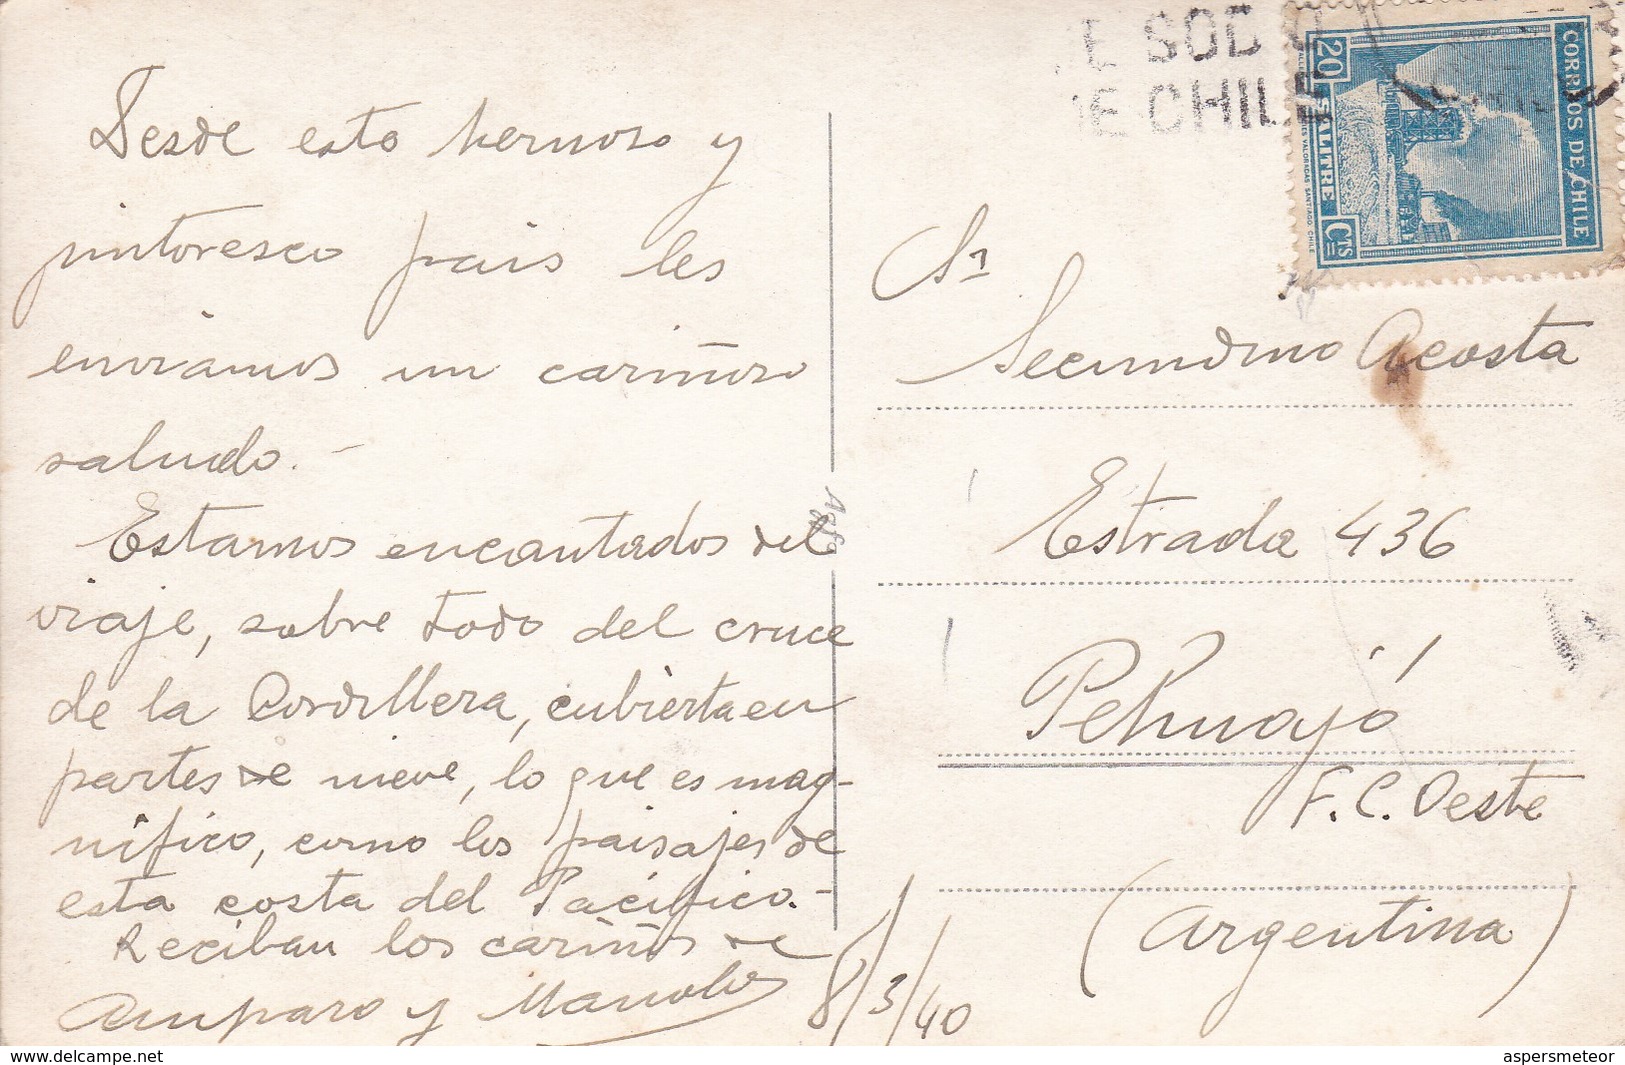 Desde esto hermoso y
pintoresco pais les
enviamos un cariñoso
saludo. -
Estamos encantados del
viaje, sobre todo del cruce
de la Cordillera, cubierta en
partes de nieve, lo que es mag-
nífico, como los paisajes de
esta costa del Pacífico. -
Reciban los cariños de
Amparo y Manolo
8/3/40
Agfa
DE CHILE
CORREOS DE CHILE
20
SALITRE
CTS
Sr
Secundino Acosta
Estrada 436
Pehuajó
F. C. Oeste
(Argentina)
www.delcampe.net
aspersmeteor